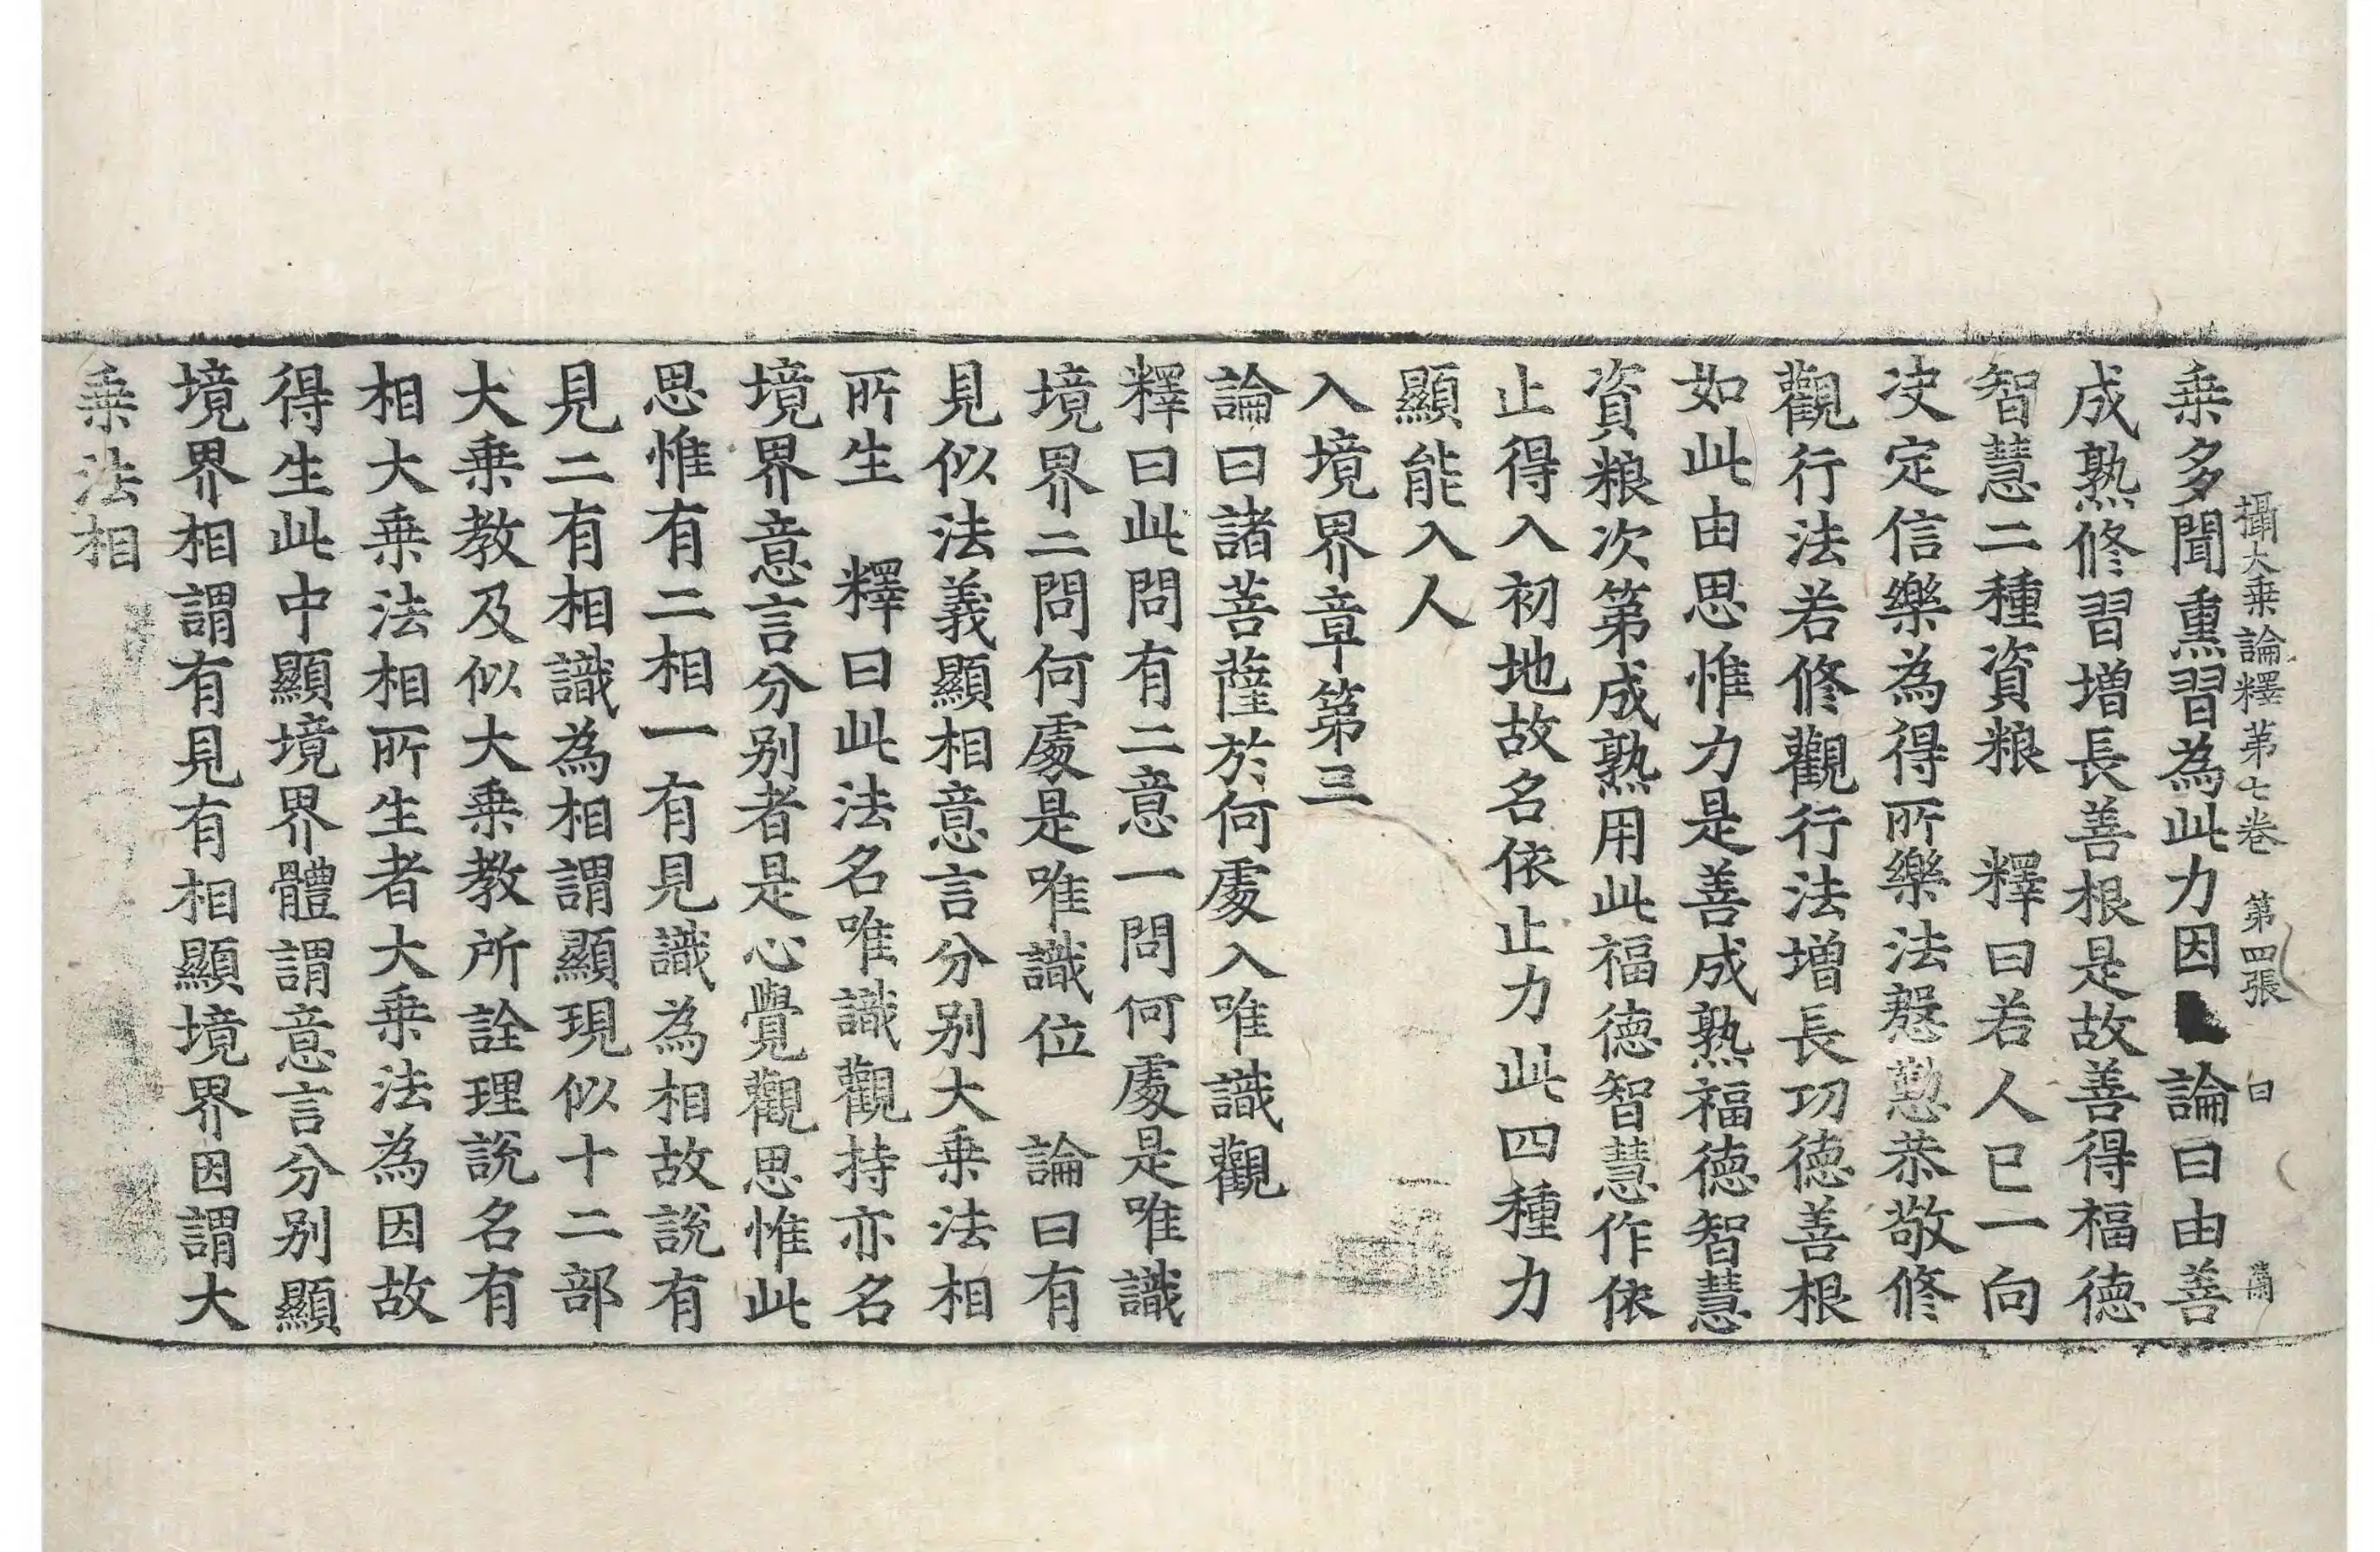 攝大乗論釋第七卷　第四張　曰
乗多聞熏習為此力因　論曰由善
成熟修習增長善根是故善得福德
智慧二種資粮　釋曰若人已一向
决定信樂為得所樂法慇懃恭敬修
觀行法若修觀行法增長功德善根
如此由思惟力是善成熟福德智慧
資粮次第成熟用此福德智慧作依
止得入初地故名依止力此四種力
顯能入人
入境界章第三
論曰諸菩薩於何處入唯識觀
釋曰此問有二意一問何處是唯識
境界二問何處是唯識位　論曰有
見似法義顯相意言分别大乗法相
所生　釋曰此法名唯識觀持亦名
境界意言分别者是心覺觀思惟此
思惟有二相一有見識為相故說有
見二有相識為相謂顯現似十二部
大乗教及似大乗教所詮理說名有
相大乗法相所生者大乗法為因故
得生此中顯境界體謂意言分别顯
境界相謂有見有相顯境界因謂大
乗法相